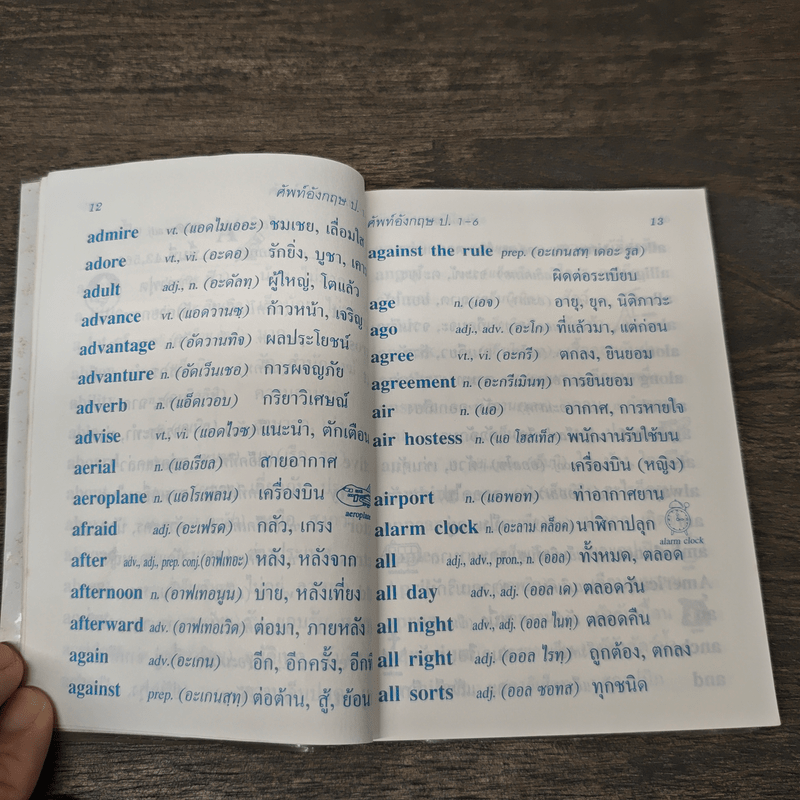 12 ศัพท์อังกฤษ ป.
admire vt. (แอดไมเออะ) ชมเชย, เลื่อมใส
adore vt., vi. (อะดอ) รักยิ่ง, บูชา,
adult adj., n. (อะดัลทฺ) ผู้ใหญ่, โตแล้ว
advance vt. (แอดวานซฺ) ก้าวหน้า, เจริญ
advantage n. (อัดวานทิจ) ผลประโยชน์
advanture n. (อัดเว็นเชอ) การผจญภัย
adverb n. (แอ็ดเวอบ) กริยาวิเศษณ์
advise vt., vi. (แอดไวซฺ) แนะนำ, ตักเตือน
aerial n. (แอเรียล) สายอากาศ
aeroplane n. (แอโรเพลน) เครื่องบิน
aeroplane
afraid adj. (อะเฟรด) กลัว, เกรง
after adv., adj., prep. conj. (อาฟเทอะ) หลัง, หลังจาก
afternoon n. (อาฟเทอนูน) บ่าย, หลังเที่ยง
afterward adv. (อาฟเทอเวิด) ต่อมา, ภายหลัง
again adv. (อะเกน) อีก, อีกครั้ง,
against prep. (อะเกนสทฺ) ต่อต้าน, สู้, ย้อน
ศัพท์อังกฤษ ป. 1-6 13
against the rule prep. (อะเกนสทฺ เดอะ รูล)
ผิดต่อระเบียบ
age n. (เอจ) อายุ, ยุค, นิติภาวะ
ago adj., adv. (อะโก) ที่แล้วมา, แต่ก่อน
agree vt., vi. (อะกรี) ตกลง, ยินยอม
agreement n. (อะกรีเมินทฺ) การยินยอม
air n. (แอ) อากาศ, การหายใจ
air hostess n. (แอ โฮสเท็ส) พนักงานรับใช้บน
เครื่องบิน (หญิง)
airport n. (แอพอท) ท่าอากาศยาน
alarm clock n. (อะลาม คล็อค) นาฬิกาปลุก
alarm clock
all adj., adv., pron., n. (ออล) ทั้งหมด, ตลอด
all day adv., adj. (ออล เด) ตลอดวัน
all night adv., adj. (ออล ไนทฺ) ตลอดคืน
all right adj. (ออล ไรทฺ) ถูกต้อง, ตกลง
all sorts adj. (ออล ซอทส) ทุกชนิด